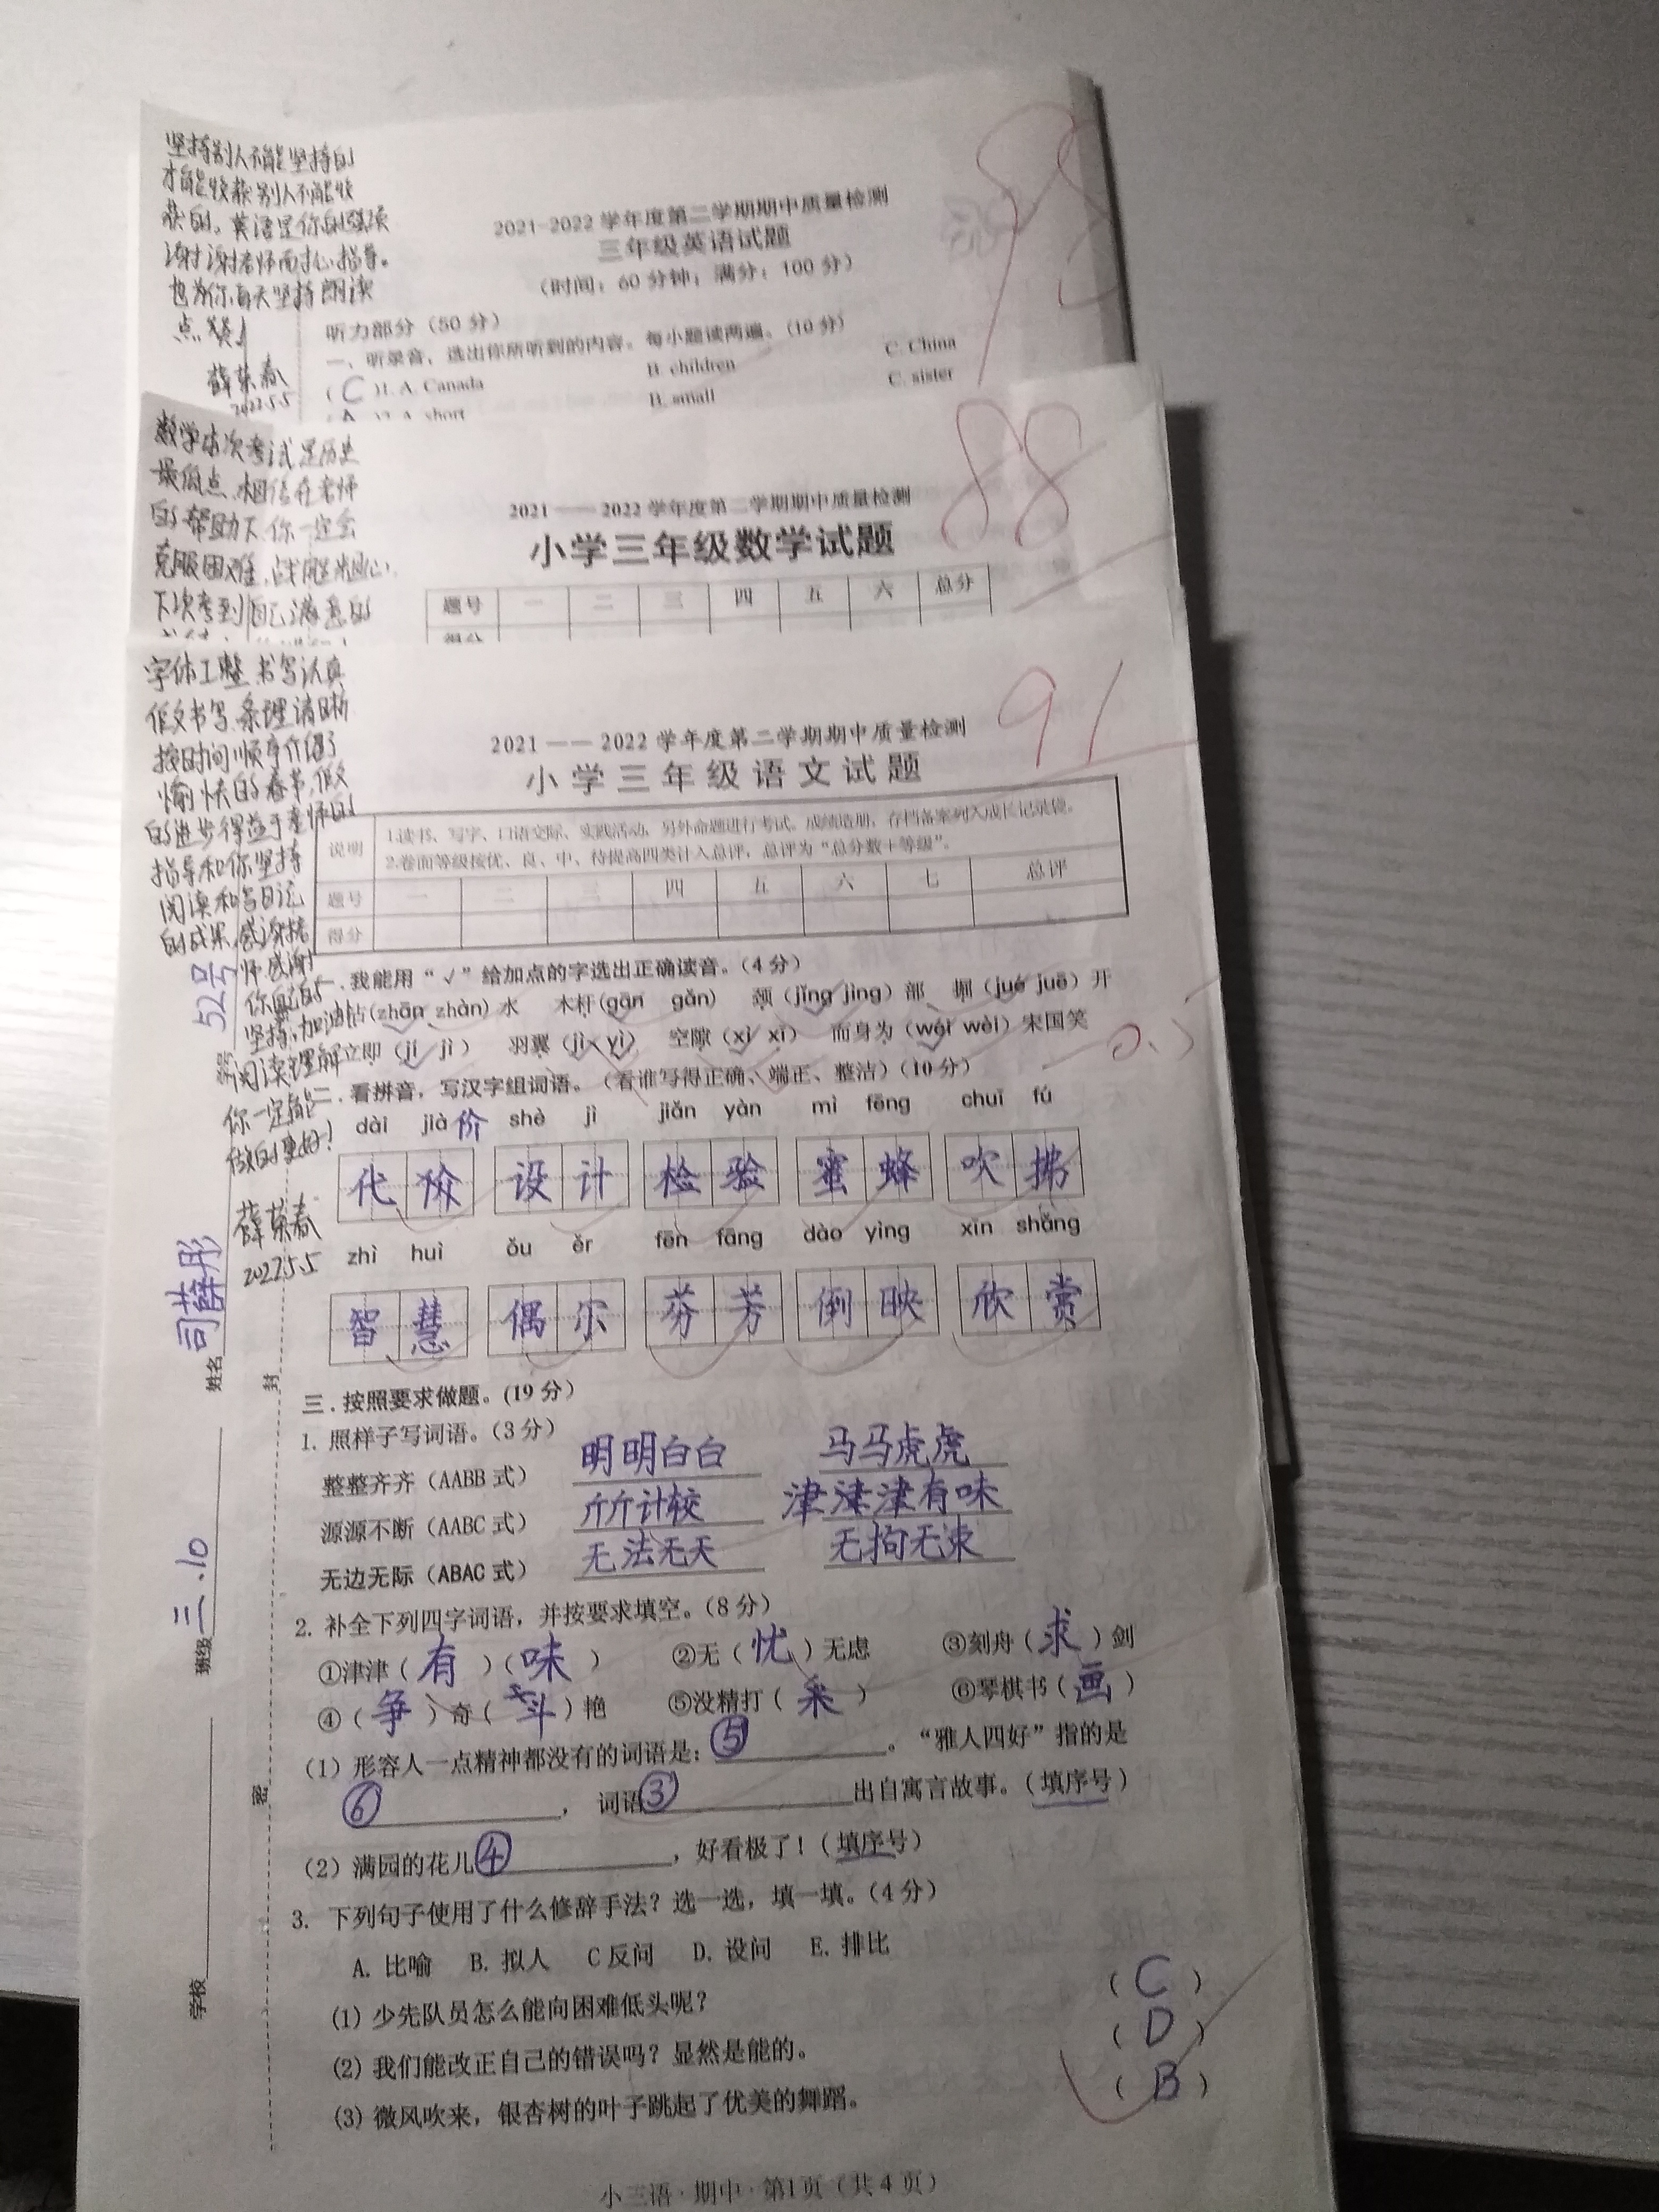 坚持别人不能坚持的
才能收获别人不能收
获的。英语是你的强项
谢谢老师耐心指导。
也为你每天坚持朗读
点赞!
薛荣春
2022.5.5
95
2021-2022 学年度第二学期期中质量检测
三年级英语试题
(时间：60 分钟；满分：100 分)
听力部分（50 分）
一、听录音，选出你所听到的内容。每小题读两遍。(10 分)
( C )1. A. Canada B. children C. China
A. short B. small C. sister
数学本次考试是历史
最低点,相信在老师
的帮助下,你一定会
克服困难,战胜粗心,
下次考到自己满意的
88
2021 —— 2022 学年度第二学期期中质量检测
小学三年级数学试题
题号 一 二 三 四 五 六 总分
得分
字体工整 书写认真
作文书写 条理清晰
按时间顺序介绍了
愉快的春节,你
的进步得益于老师的
指导和你坚持
阅读和写日记
的成果,感谢老
师,感谢
你自己的
坚持,加油
阅读理解
你一定能
做的更好!
薛荣春
2022.5.5
91
2021 —— 2022 学年度第二学期期中质量检测
小学三年级语文试题
说明 1.读书、写字、口语交际、实践活动，另外命题进行考试。成绩造册，存档备案列入成长记录袋。
2.卷面等级按优、良、中、待提高四类计入总评，总评为“总分数+等级”。
题号 一 二 三 四 五 六 七 总评
得分
52号
姓名 司薛彤
班级 三.10
学校
封
密
一.我能用“√”给加点的字选出正确读音。（4 分）
沾(zhān zhàn)水 木杆(gān gǎn) 颈（jǐng jìng）部 掘（jué juē）开
立即（jí jì） 羽翼（jì yì） 空隙（xì xī） 而身为（wéi wèi）宋国笑
0.5
二.看拼音，写汉字组词语。（看谁写得正确、端正、整洁）（10 分）
dài jià 价 shè jì jiǎn yàn mì fēng chuī fú
代价 设计 检验 蜜蜂 吹拂
zhì huì ǒu ěr fēn fāng dào yìng xīn shǎng
智慧 偶尔 芬芳 倒映 欣赏
三.按照要求做题。(19 分）
1. 照样子写词语。（3 分）
整整齐齐（AABB 式） 明明白白 马马虎虎
源源不断（AABC 式） 斤斤计较 津津有味
无边无际（ABAC 式） 无法无天 无拘无束
2. 补全下列四字词语，并按要求填空。（8 分）
①津津（ 有 ）（ 味 ） ②无（ 忧 ）无虑 ③刻舟（ 求 ）剑
④（ 争 ）奇（ 斗 ）艳 ⑤没精打（ 采 ） ⑥琴棋书（ 画 ）
（1）形容人一点精神都没有的词语是：⑤。“雅人四好”指的是
⑥， 词语③出自寓言故事。（填序号）
（2）满园的花儿④，好看极了！（填序号）
3. 下列句子使用了什么修辞手法？选一选，填一填。（4 分）
A. 比喻 B. 拟人 C 反问 D. 设问 E. 排比
(1) 少先队员怎么能向困难低头呢？ （ C ）
(2) 我们能改正自己的错误吗？显然是能的。 （ D ）
(3) 微风吹来，银杏树的叶子跳起了优美的舞蹈。 （ B ）
小三语·期中·第1页（共 4 页）